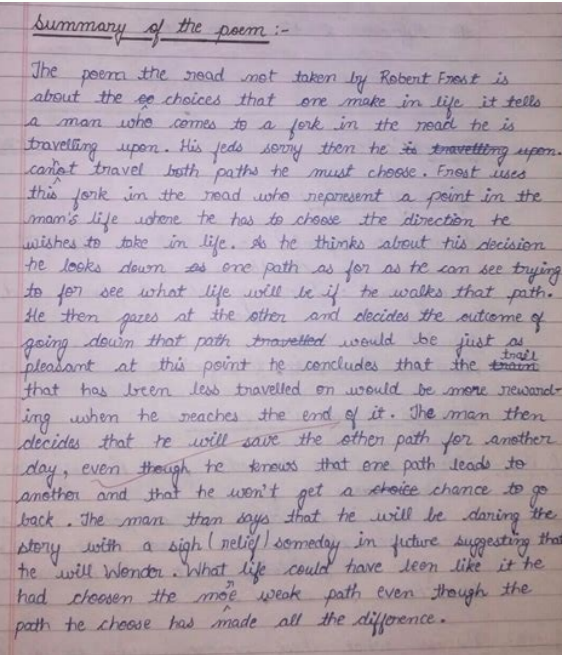 Summary of the poem :-
The poem the road not taken by Robert Frost is
about the choices that one make in life it tells
a man who comes to a fork in the road he is
travelling upon. His feds sorry then he is travelling upon.
cannot travel both paths he must choose. Frost uses
this fork in the road who represent a point in the
man's life where he has to choose the direction he
wishes to take in life. As he thinks about his decision
he looks down as one path as for as he can see trying
to for see what life will be if he walks that path.
He then gazes at the other and decides the outcome of
going down that path travelled would be just as
pleasant at this point he concludes that the train trail
that has been less travelled on would be more reward-
ing when he reaches the end of it. The man then
decides that he will save the other path for another
day, even though he knows that one path leads to
another and that he won't get a choice chance to go
back. The man than says that he will be daring the
story with a sigh (relief) someday in future suggesting that
he will Wonder. What life could have been like it he
had choosen the more weak path even though the
path he choose has made all the difference.